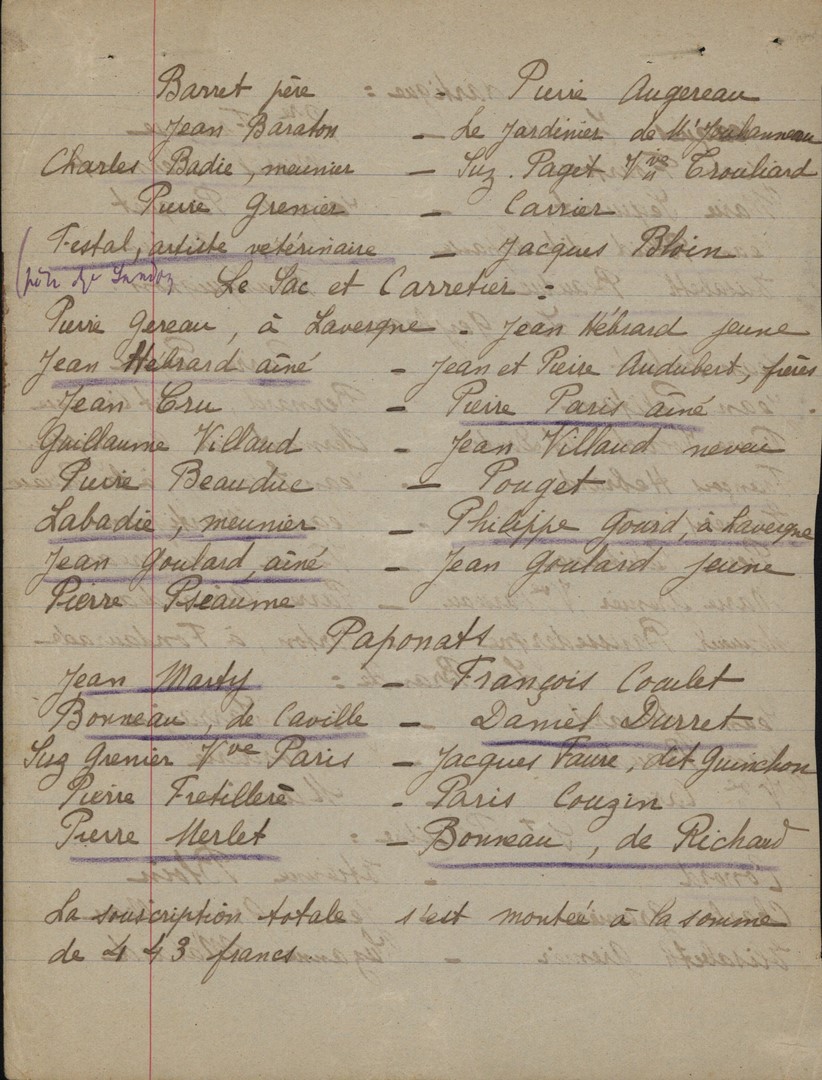 Barret père Pierre Augereau
Jean Baraton - Le Jardinier de Mr Joubanneau
Charles Badie, meunier - Suz. Paget Vve Trouliard
Pierre Grenier - Carrier
Festal, artiste vetérinaire - Jacques Bloin
Le Sac et Carretier :
Pierre Gereau, à Lavergne - Jean Hébrard jeune
Jean Hébrard aîné - Jean et Pierre Audubert, frères
Jean Cru - Pierre Paris aîné
Guillaume Villaud - Jean Villaud neveu
Pierre Beauduc - Pouget
Labadie, meunier - Philippe Gourd, à Lavergne
Jean Goulard, aîné - Jean Goulard jeune
Pierre Pseaume
Paponats
Jean Marty - François Coculet
Bonneau, de Caville - Daniel Durret
Suz Grenier Vve Paris - Jacques Faure, dit Guinchon
Pierre Fretillere - Paris Couzin
Pierre Merlet - Bonneau, de Richaud
La souscription totale s'est montée à la somme
de 443 francs.